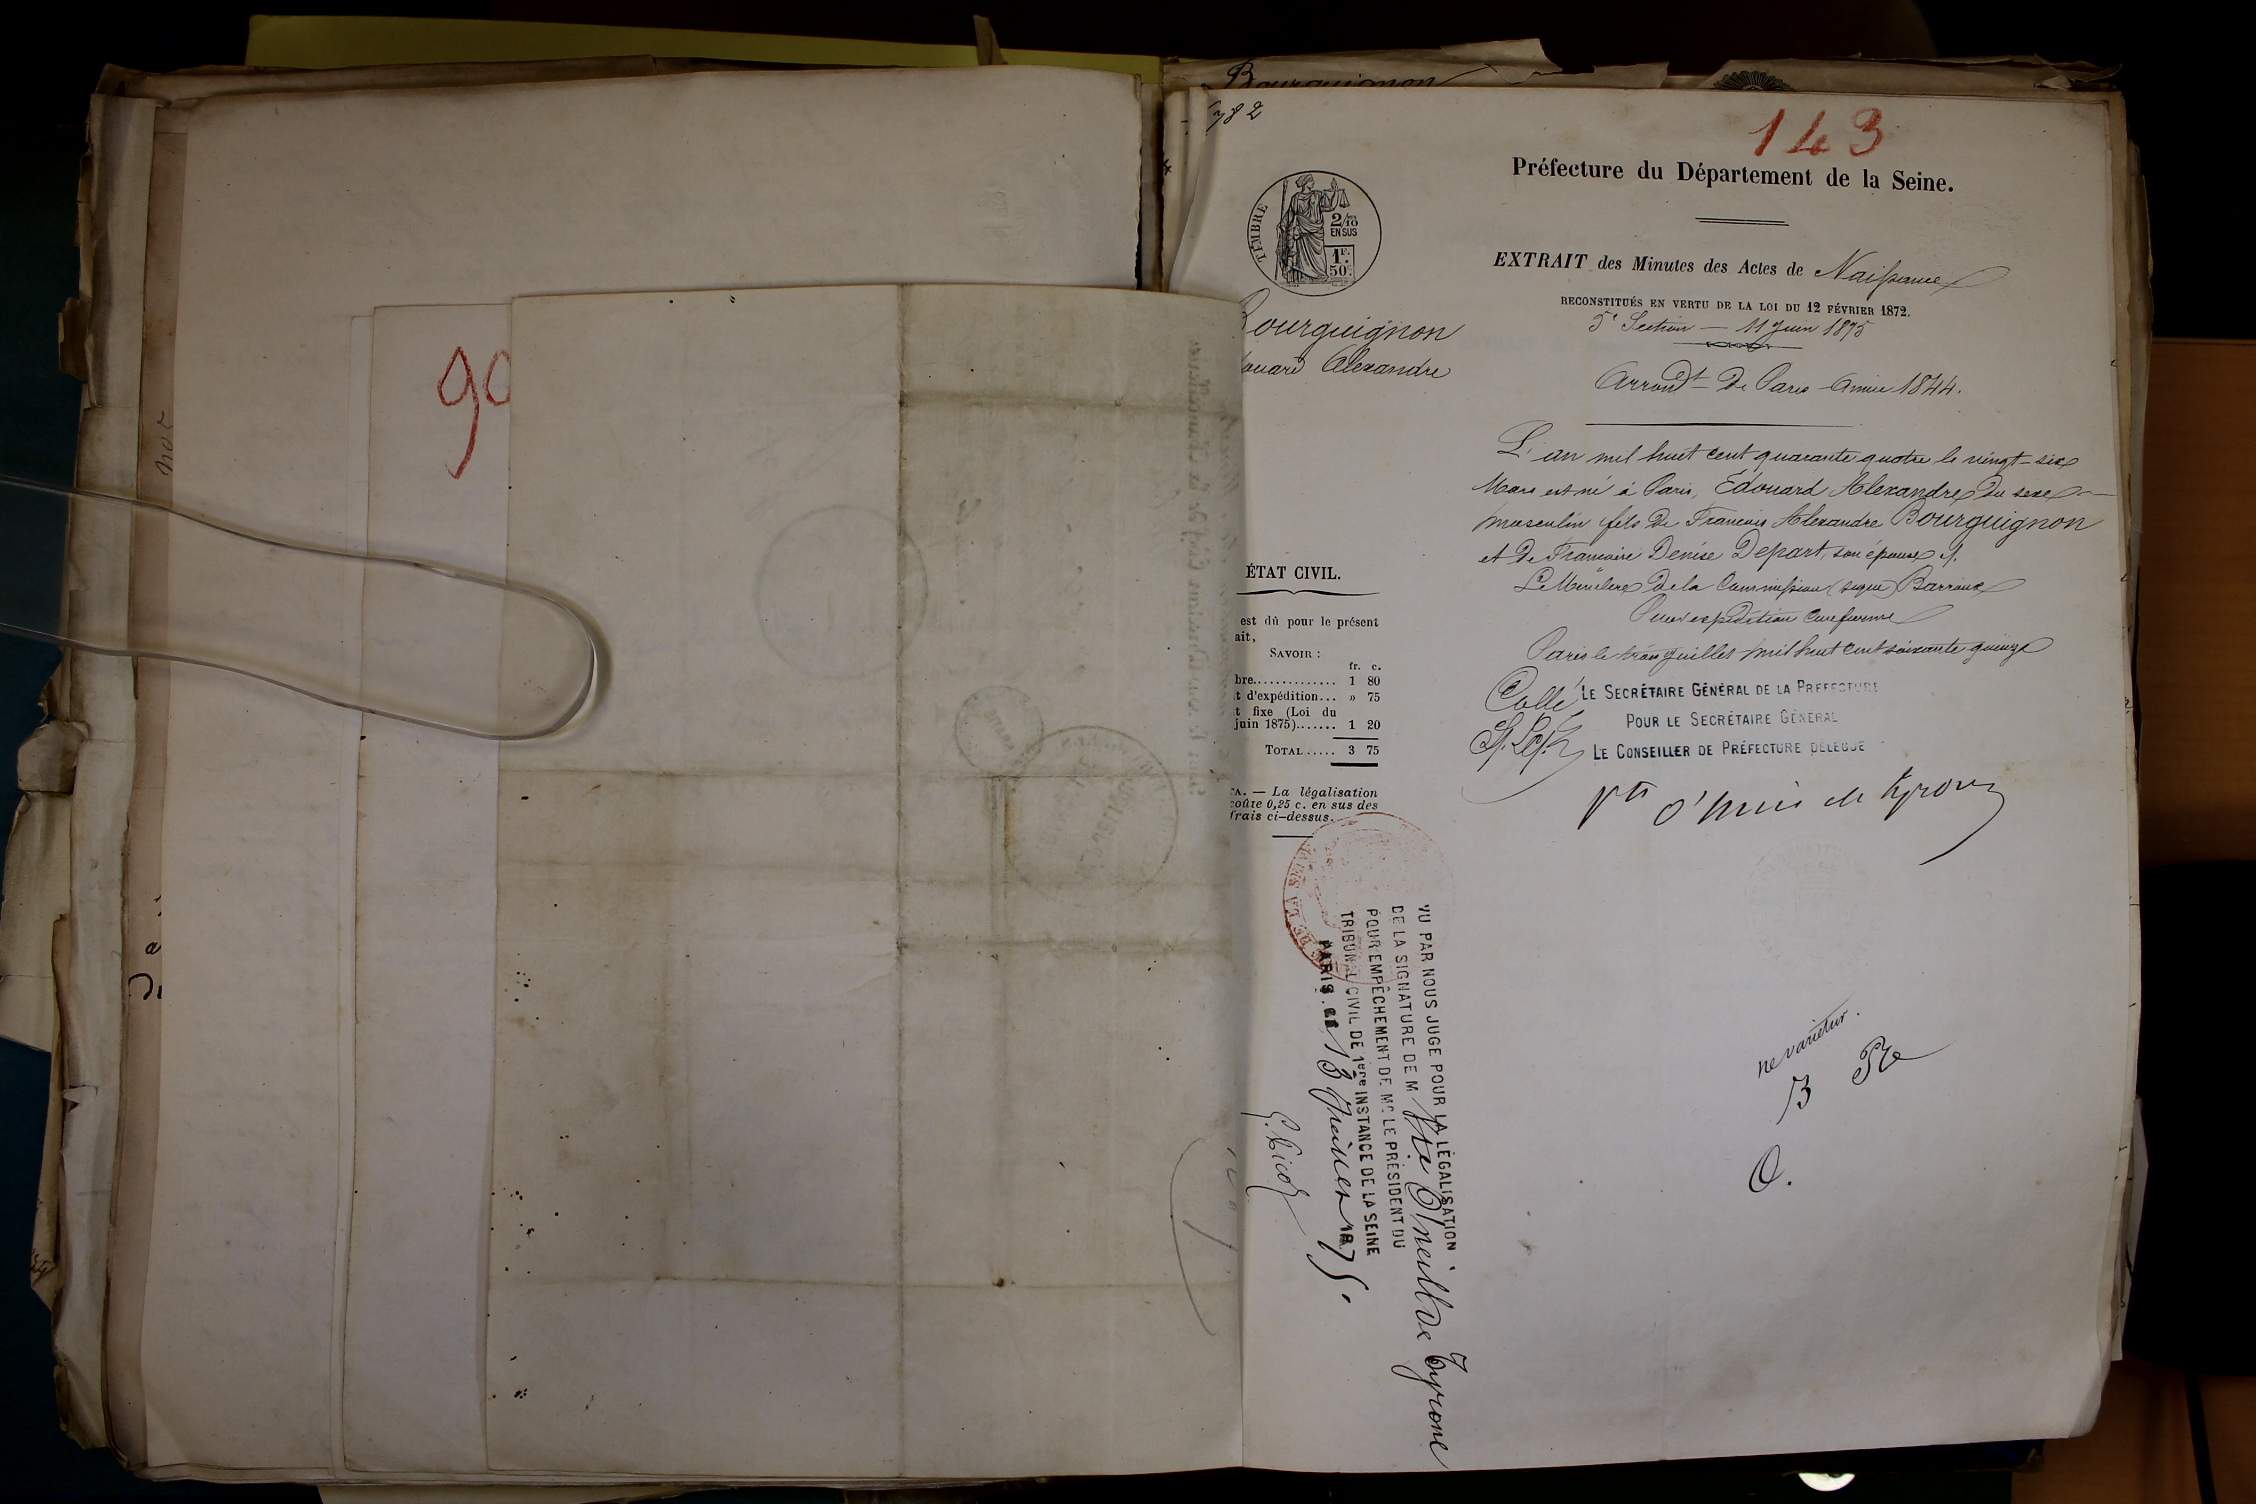 90
Bourguignon
782
143
Préfecture du Département de la Seine.
TIMBRE
2/10
EN SUS
1F.
50c
EXTRAIT des Minutes des Actes de Naissance
RECONSTITUÉS EN VERTU DE LA LOI DU 12 FÉVRIER 1872.
5e Section — 11 Juin 1875
Arrondt de Paris Année 1844.
Bourguignon
ouard Alexandre
L'an mil huit cent quarante quatre le vingt-six
Mars est né à Paris, Edouard Alexandre du sexe
masculin fils de François Alexandre Bourguignon
et de Françoise Denise Depart, son épouse
Le Membre de la Commission (signé) Barroux
Pour expédition conforme
Paris le trois Juillet mil huit cent soixante quinze
Collé
LE SECRÉTAIRE GÉNÉRAL DE LA PRÉFECTURE
POUR LE SECRÉTAIRE GÉNÉRAL
LE CONSEILLER DE PRÉFECTURE DÉLÉGUÉ
Vte O'Neill de Tyrone
ÉTAT CIVIL.
est dû pour le présent
ait,
SAVOIR :
fr. c.
bre.............. 1 80
t d'expédition... » 75
t fixe (Loi du
juin 1875)....... 1 20
TOTAL..... 3 75
TA. — La légalisation
coûte 0,25 c. en sus des
frais ci-dessus.
DE LA SEINE
VU PAR NOUS JUGE POUR LA LÉGALISATION
DE LA SIGNATURE DE M Vte O'Neill de Tyrone
POUR EMPÊCHEMENT DE MR LE PRÉSIDENT DU
TRIBUNAL CIVIL DE 1ère INSTANCE DE LA SEINE
PARIS. LE 13 Juillet 1875.
G. Picot
ne varietur.
B
O.